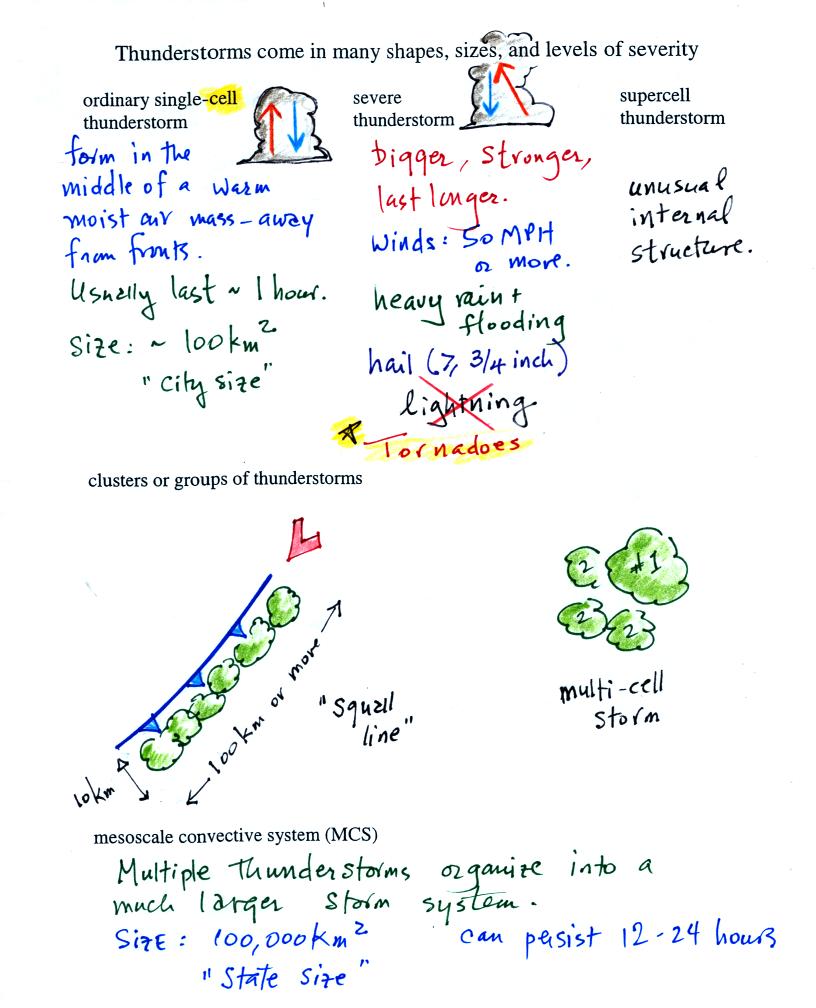 Thunderstorms come in many shapes, sizes, and levels of severity
ordinary single-cell
thunderstorm
form in the
middle of a warm
moist air mass - away
from fronts.
Usually last ~ 1 hour.
Size: ~ 100 km²
"City size"
severe
thunderstorm
bigger, stronger,
last longer.
Winds: 50 MPH
or more.
heavy rain +
flooding
hail (≥ 3/4 inch)
lightning
Tornadoes
supercell
thunderstorm
unusual
internal
structure.
clusters or groups of thunderstorms
L
10km
100km or more
"Squall
line"
2
#1
2
2
multi-cell
storm
mesoscale convective system (MCS)
Multiple thunderstorms organize into a
much larger storm system.
SIZE: 100,000 km²
can persist 12-24 hours
"State size"